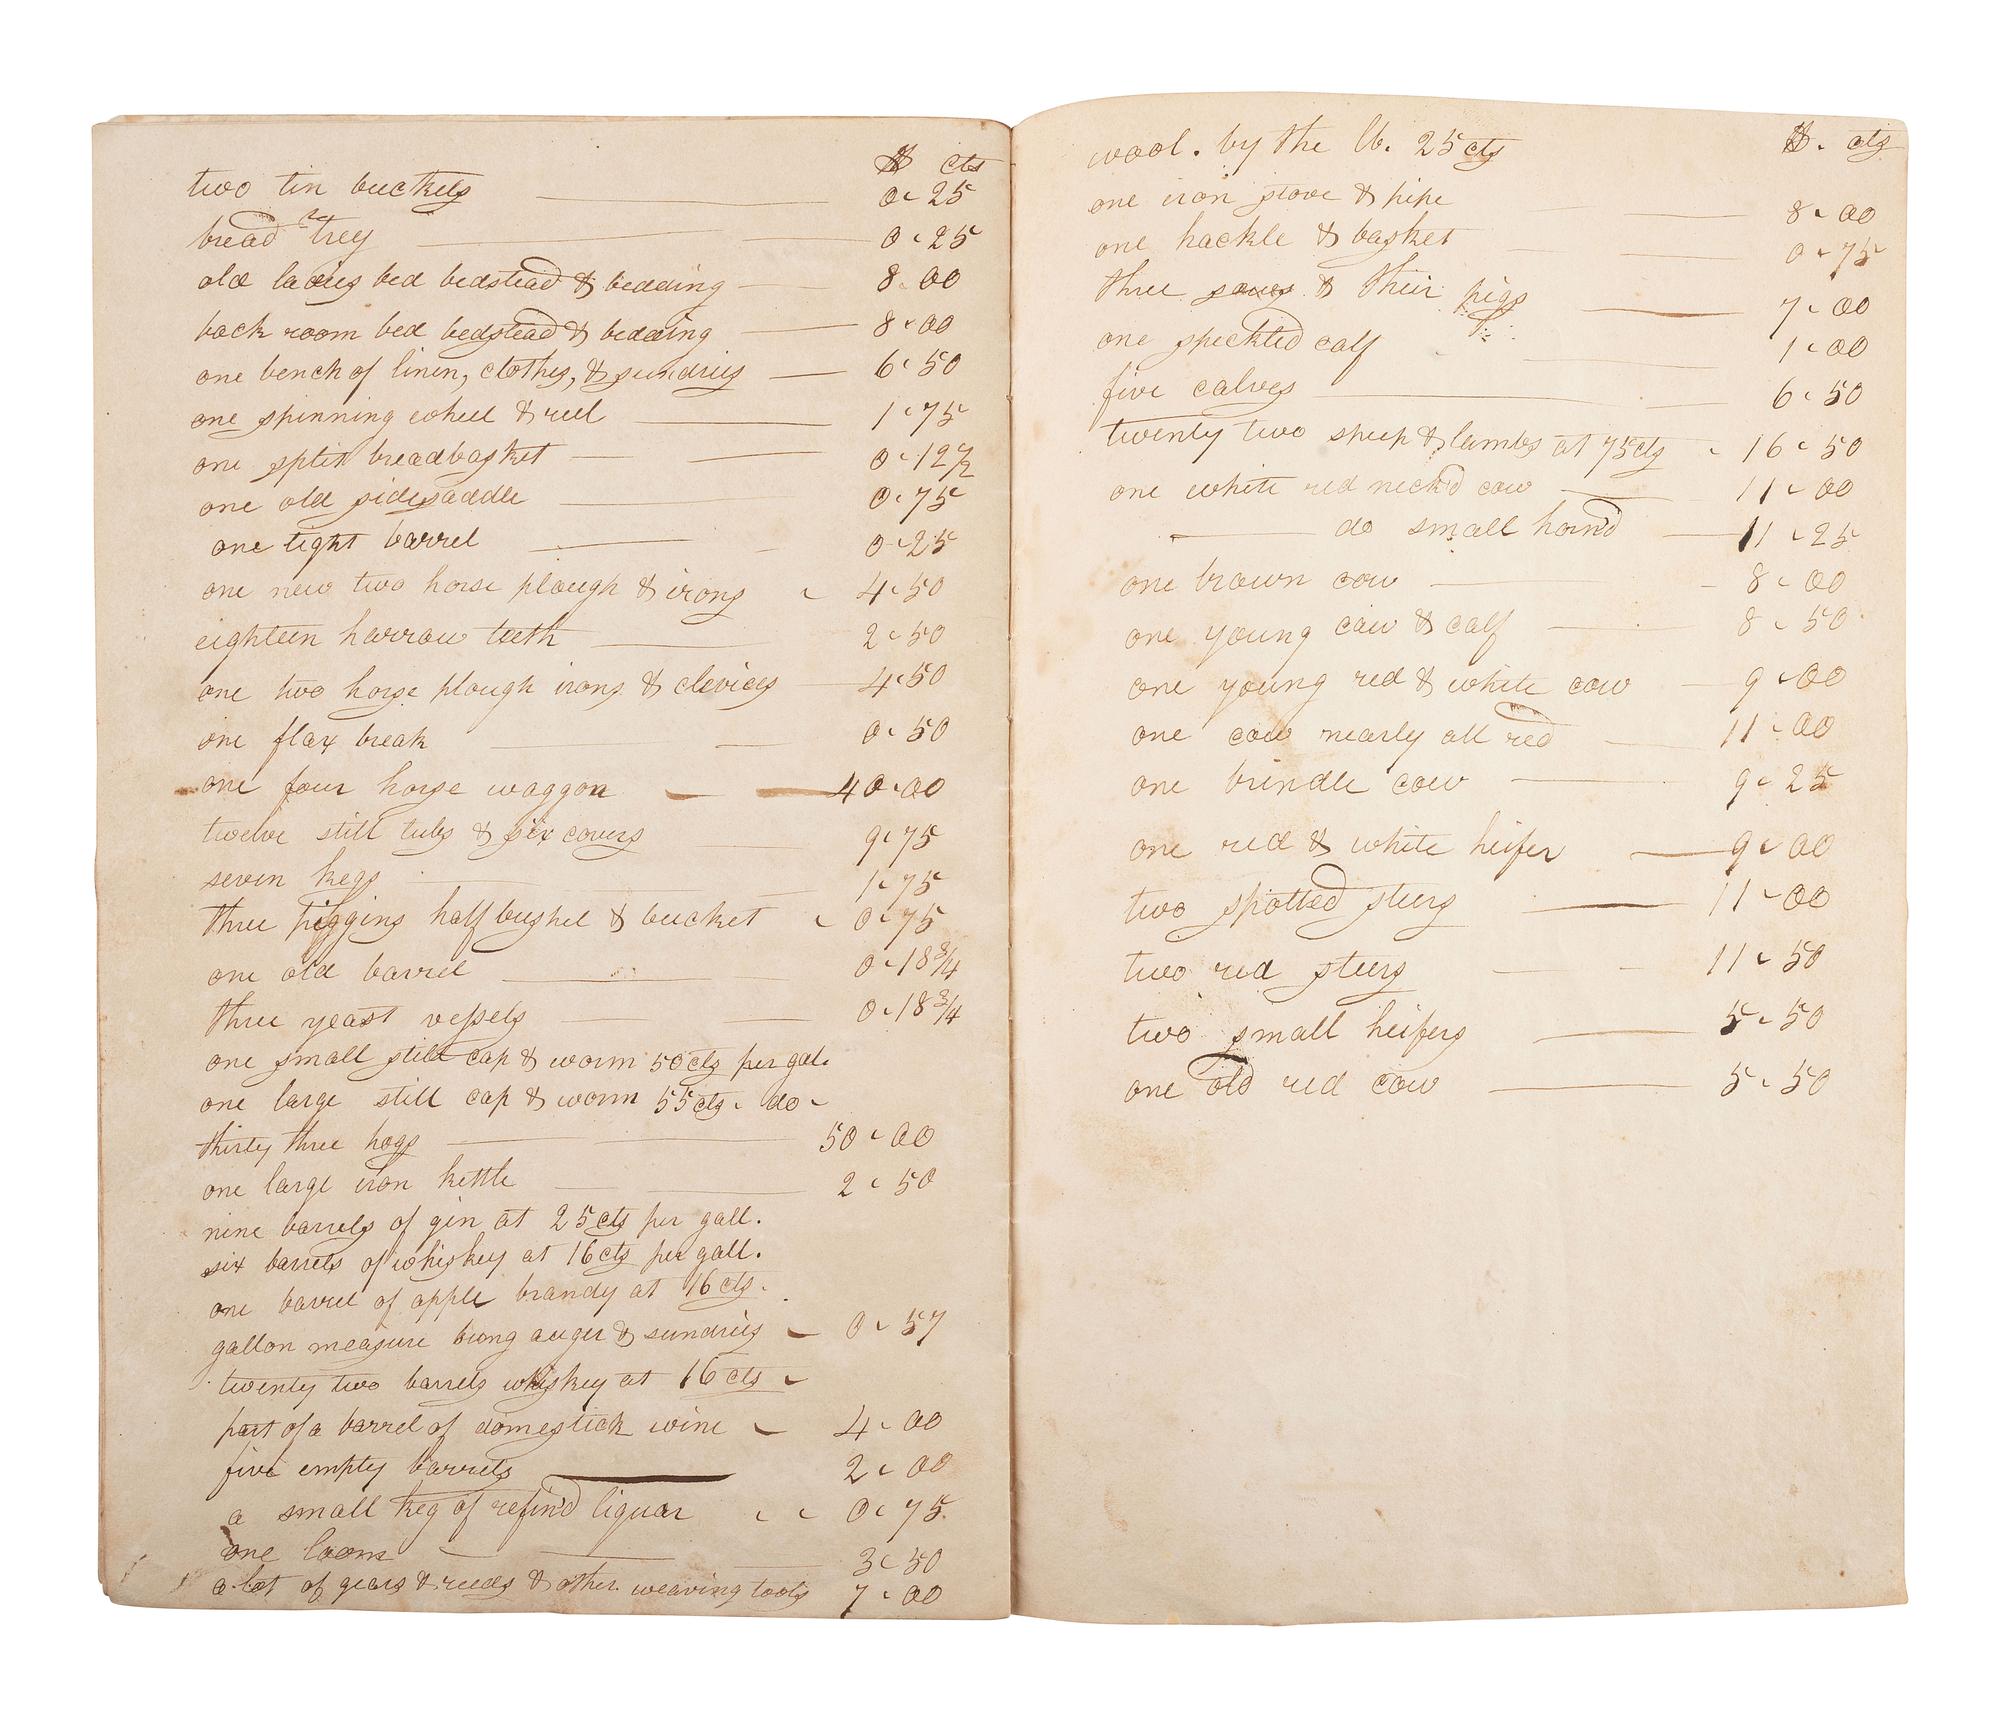 $ cts
two tin buckets — 0 " 25
bread trey — 0 " 25
old ladies bed bedstead & bedding — 8 " 00
back room bed bedstead & bedding — 8 " 00
one bench of linen, clothes, & sundries — 6 " 50
one spinning wheel & reel — 1 " 75
one split breadbasket — 0 " 12 1/2
one old sidesaddle — 0 " 75
one tight barrel — 0 " 25
one new two horse plough & irons " 4 " 50
eighteen harrow teeth — 2 " 50
one two horse plough irons & clevices — 4 " 50
one flax break — 0 " 50
one four horse waggon — 40 " 00
twelve still tubs & six covers — 9 " 75
seven kegs — 1 " 75
three piggins half bushel & bucket " 0 " 75
one old barrel — 0 " 18 3/4
three yeast vessels — 0 " 18 3/4
one small still cap & worm 50 cts per gal.
one large still cap & worm 55 cts " do "
thirty three hogs — 50 " 00
one large iron kettle — 2 " 50
nine barrels of gin at 25 cts per gall.
six barrels of whiskey at 16 cts per gall.
one barrel of apple brandy at 16 cts.
gallon measure bung auger & sundries " 0 " 57
twenty two barrels whiskey at 16 cts "
part of a barrel of domestick wine " 4 " 00
five empty barrels — 2 " 00
a small keg of refin'd liquor " " 0 " 75
one loom — 3 " 50
a lot of gears & reeds & other weaving tools 7 " 00
wool. by the lb. 25 cts $. cts
one iron stove & pipe — 8 " 00
one hackle & basket — 0 " 75
three sows & their pigs — 7 " 00
one speckled calf — 1 " 00
five calves — 6 " 50
twenty two sheep & lambs at 75 cts " 16 " 50
one white red neck'd cow — 11 " 00
— do small horn'd — 11 " 25
one brown cow — 8 " 00
one young cow & calf — 8 " 50
one young red & white cow — 9 " 00
one cow nearly all red — 11 " 00
one brindle cow — 9 " 25
one red & white heifer — 9 " 00
two spotted steers — 11 " 00
two red steers — 11 " 50
two small heifers — 5 " 50
one old red cow — 5 " 50